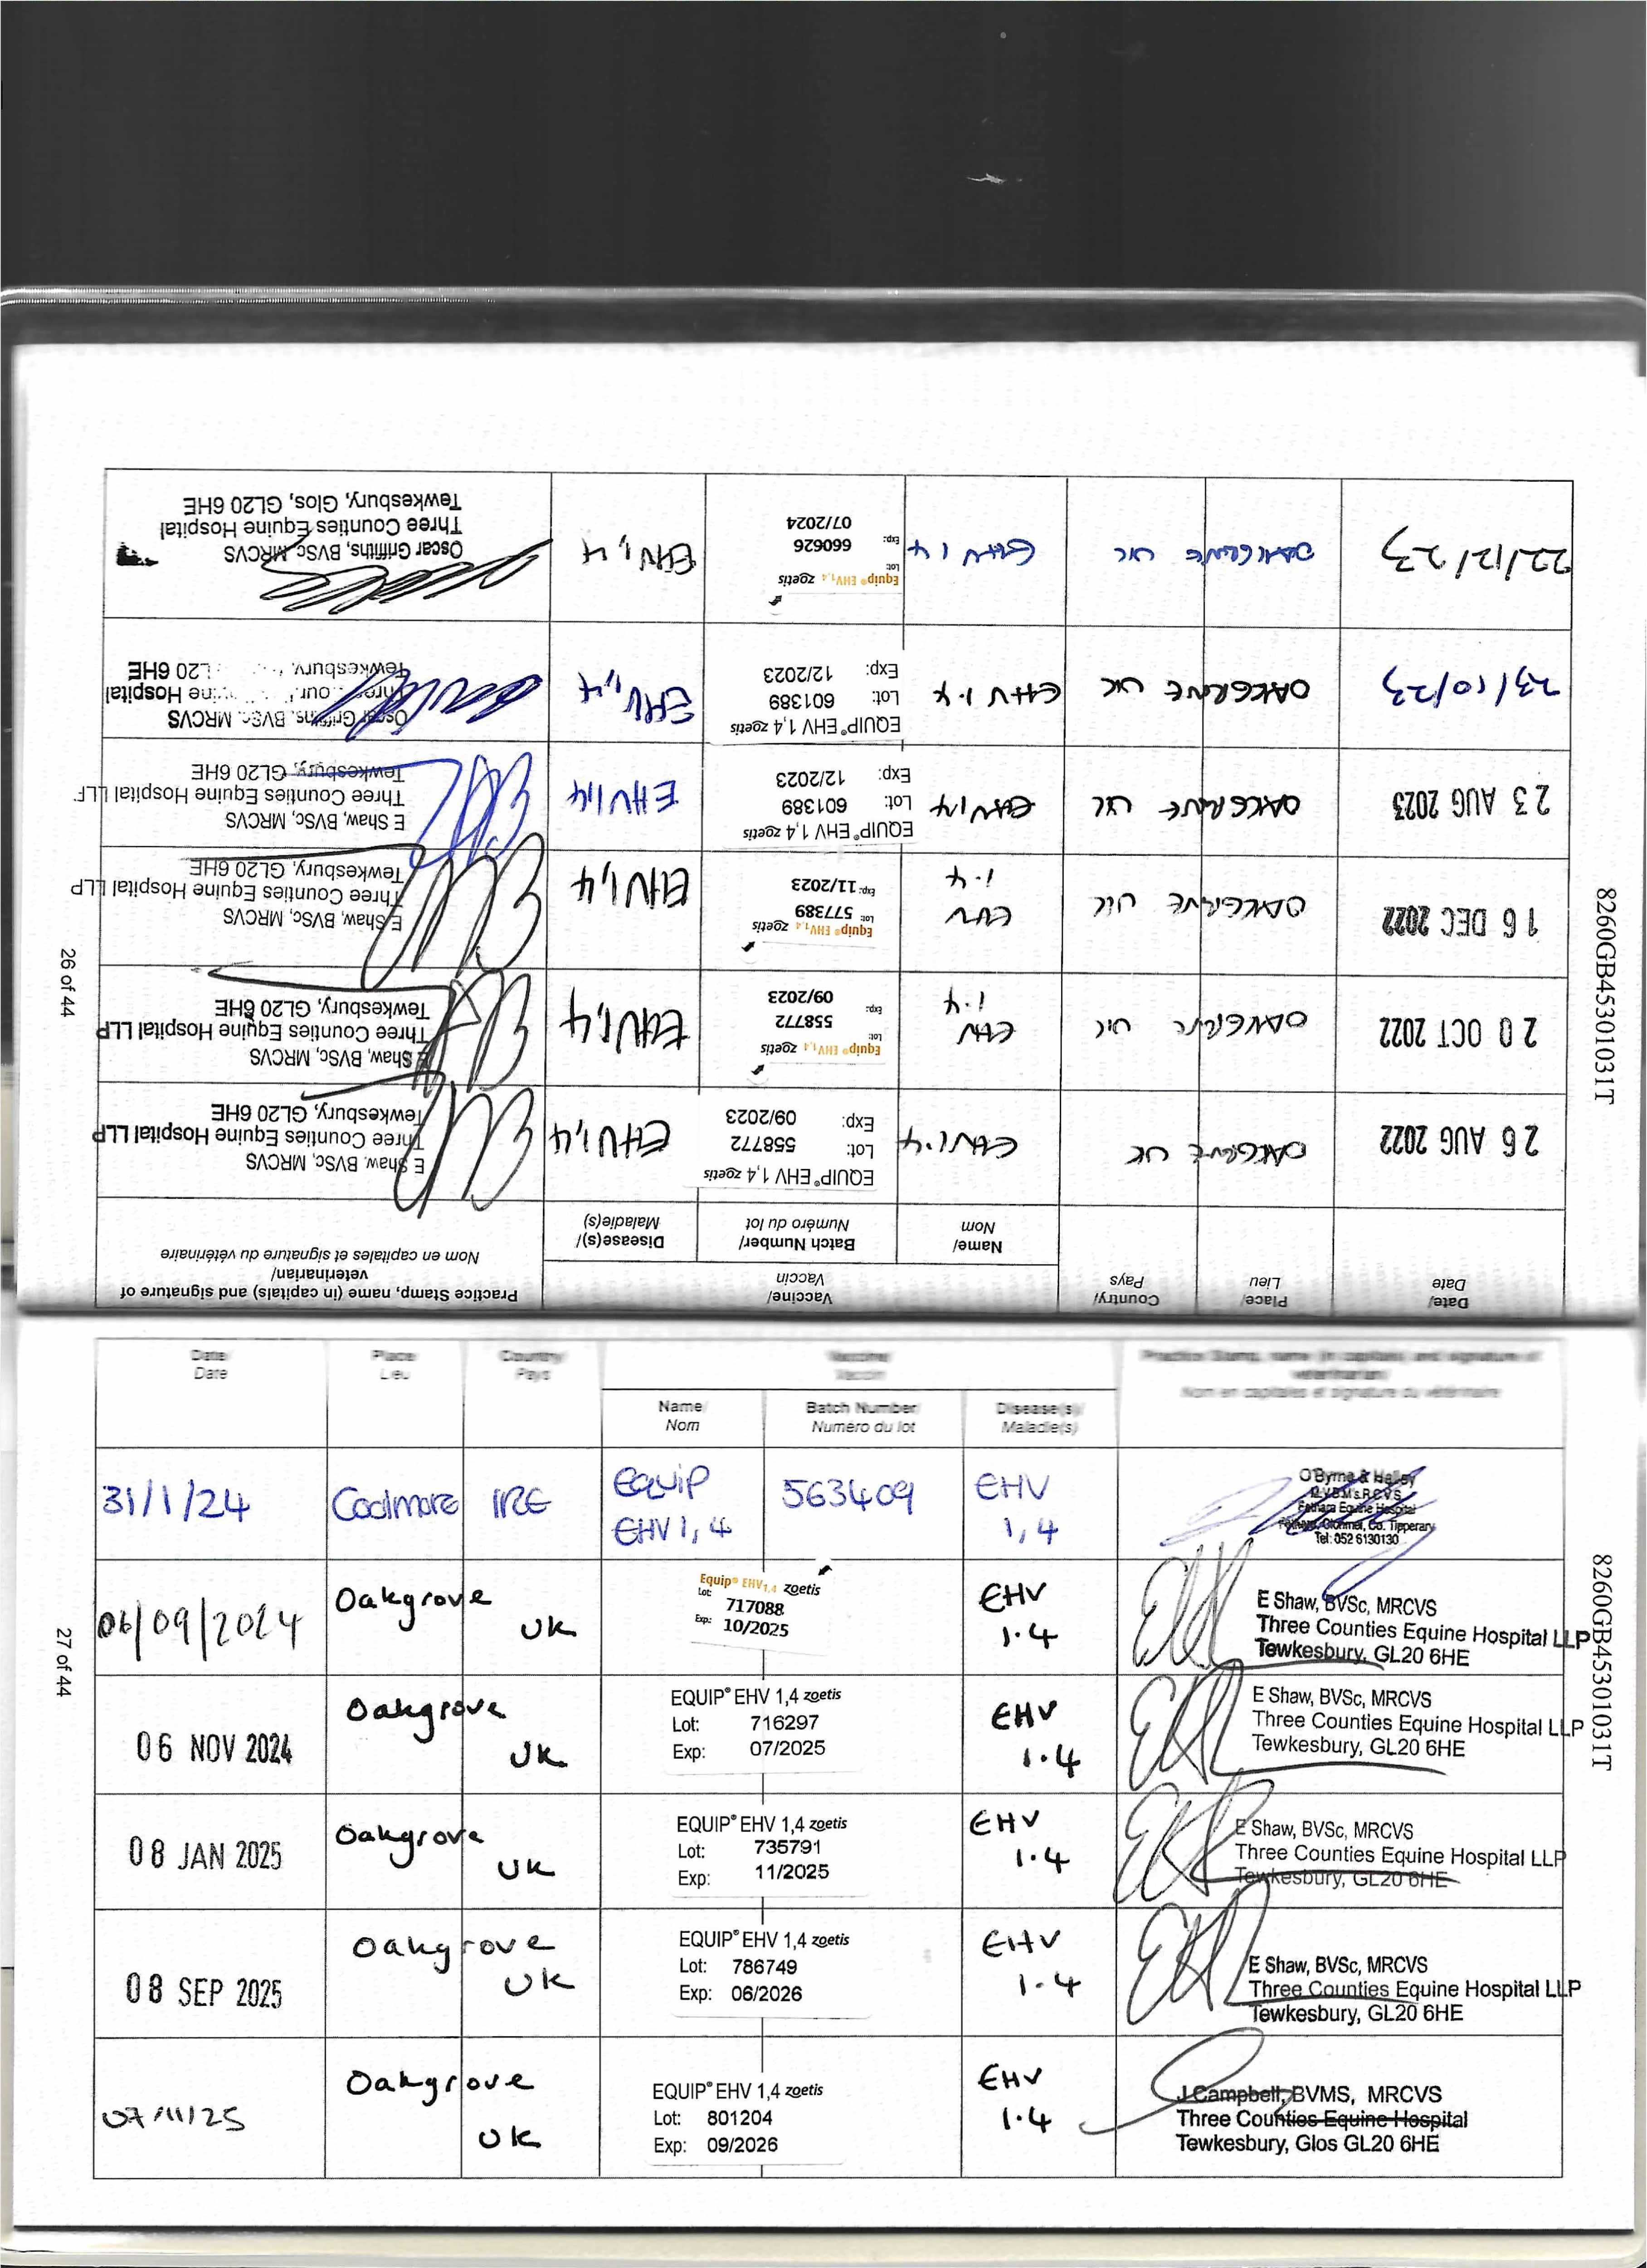 26 of 44
8260GB45301031T
Date/ Date
Place/ Lieu
Country/ Pays
Vaccine/ Vaccin
Name/ Nom
Batch Number/ Numéro du lot
Disease(s)/ Maladie(s)
Practice Stamp, name (in capitals) and signature of
veterinarian/
Nom en capitales et signature du vétérinaire
26 AUG 2022
OAKGROVE UK
EHV 1.4
EQUIP® EHV 1,4 zoetis
Lot: 558772
Exp: 09/2023
EHV 1,4
E Shaw, BVSc, MRCVS
Three Counties Equine Hospital LLP
Tewkesbury, GL20 6HE
20 OCT 2022
OAKGROVE UK
EHV
1.4
Equip® EHV1,4 zoetis
Lot: 558772
Exp: 09/2023
EHV 1,4
E Shaw, BVSc, MRCVS
Three Counties Equine Hospital LLP
Tewkesbury, GL20 6HE
16 DEC 2022
OAKGROVE UK
EHV
1.4
Equip® EHV1,4 zoetis
Lot: 577389
Exp: 11/2023
EHV 1,4
E Shaw, BVSc, MRCVS
Three Counties Equine Hospital LLP
Tewkesbury, GL20 6HE
23 AUG 2023
OAKGROVE UK
EHV 1,4
EQUIP® EHV 1,4 zoetis
Lot: 601389
Exp: 12/2023
EHV 1,4
E Shaw, BVSc, MRCVS
Three Counties Equine Hospital LLP
Tewkesbury, GL20 6HE
23/10/23
OAKGROVE UK
EHV 1.4
EQUIP® EHV 1,4 zoetis
Lot: 601389
Exp: 12/2023
EHV 1,4
Oscar Griffiths, BVSc, MRCVS
Hospital
Tewkesbury, GL20 6HE
22/12/23
OAKGROVE UK
EHV 1 4
Equip® EHV1,4 zoetis
Lot: 660626
Exp: 07/2024
EHV 1,4
Oscar Griffiths, BVSc MRCVS
Three Counties Equine Hospital
Tewkesbury, Glos, GL20 6HE
Date/ Date
Place/ Lieu
Country/ Pays
Vaccine/ Vaccin
Name/ Nom
Batch Number/ Numéro du lot
Disease(s)/ Maladie(s)
Practice Stamp, name (in capitals) and signature of
veterinarian/
Nom en capitales et signature du vétérinaire
31/1/24
Coolmore IRE
Equip
EHV 1, 4
563409
EHV
1, 4
O'Byrne & Halley
Fethard Equine Hospital
Clonmel, Co. Tipperary
Tel: 052 6130130
06/09/2024
Oakgrove
UK
Equip® EHV1,4 zoetis
Lot: 717088
Exp: 10/2025
EHV
1.4
E Shaw, BVSc, MRCVS
Three Counties Equine Hospital LLP
Tewkesbury, GL20 6HE
06 NOV 2024
Oakgrove
UK
EQUIP® EHV 1,4 zoetis
Lot: 716297
Exp: 07/2025
EHV
1.4
E Shaw, BVSc, MRCVS
Three Counties Equine Hospital LLP
Tewkesbury, GL20 6HE
08 JAN 2025
Oakgrove
UK
EQUIP® EHV 1,4 zoetis
Lot: 735791
Exp: 11/2025
EHV
1.4
E Shaw, BVSc, MRCVS
Three Counties Equine Hospital LLP
Tewkesbury, GL20 6HE
08 SEP 2025
Oakgrove
UK
EQUIP® EHV 1,4 zoetis
Lot: 786749
Exp: 06/2026
EHV
1.4
E Shaw, BVSc, MRCVS
Three Counties Equine Hospital LLP
Tewkesbury, GL20 6HE
07/11/25
Oakgrove
UK
EQUIP® EHV 1,4 zoetis
Lot: 801204
Exp: 09/2026
EHV
1.4
J Campbell, BVMS, MRCVS
Three Counties Equine Hospital
Tewkesbury, Glos GL20 6HE
27 of 44
8260GB45301031T